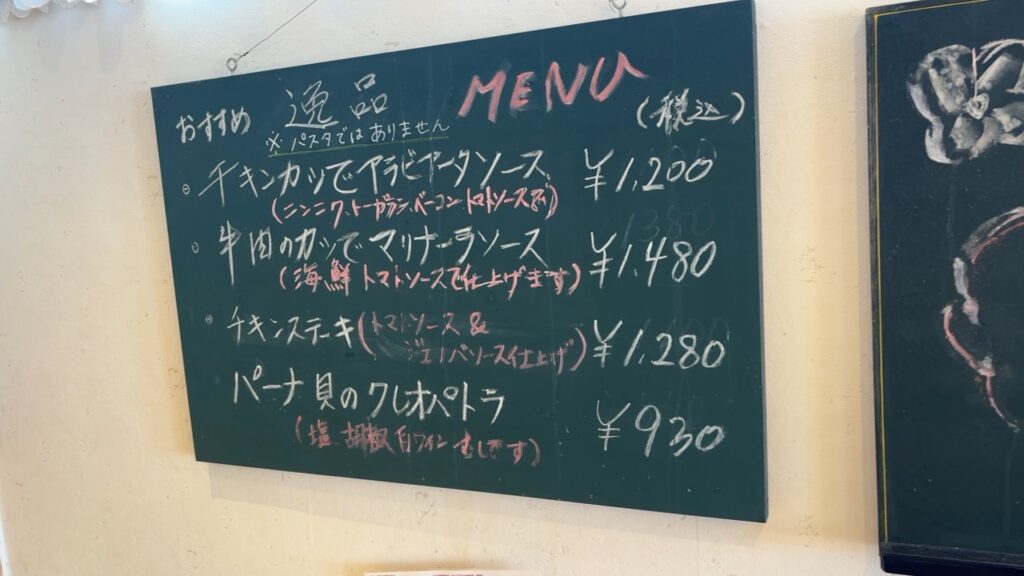 おすすめ 逸品 MENU (税込)
※ パスタではありません
チキンカツでアラビアータソース ¥1,200
(ニンニク トーガラシ ベーコン トマトソース
牛肉のカツでマリナーラソース ¥1,480
(海鮮トマトソースで仕上げます)
チキンステーキ(トマトソース & ¥1,280
ソース仕上げ)
パーナ貝のクレオパトラ ¥930
(塩 胡椒 白ワイン むしです)